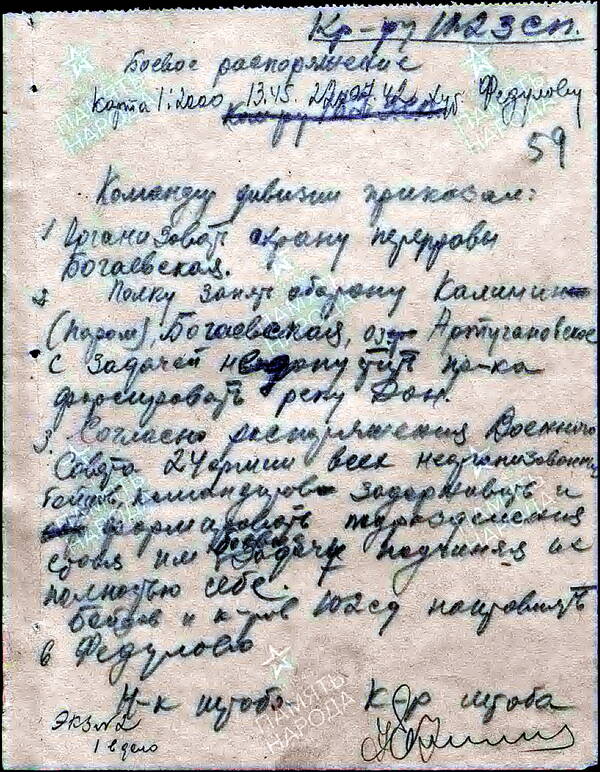 Кр-ру 1023 сп.
Боевое распоряжение
Карта 1:2000 13.45. 22.07.42 Федулову
59
Командир дивизии приказал:
1 Организовать охрану переправы
Богаевская.
2. Полку занять оборону Калинин
(паром), Богаевская, оз. Артугановское
с задачей не допустить пр-ка
форсировать реку Дон.
3. Согласно распоряжения Военного
Совета 24 армии всех неорганизованных
бойцов, командиров задерживать и
формировать подразделения
ставя им боевые задачи подчиняя их
полностью себе.
Бойцов и к-ров 102 сд направлять
в Федулово
Н-к штаба К-р штаба
Экз №2
1 в дело
ПАМЯТЬ
НАРОДА